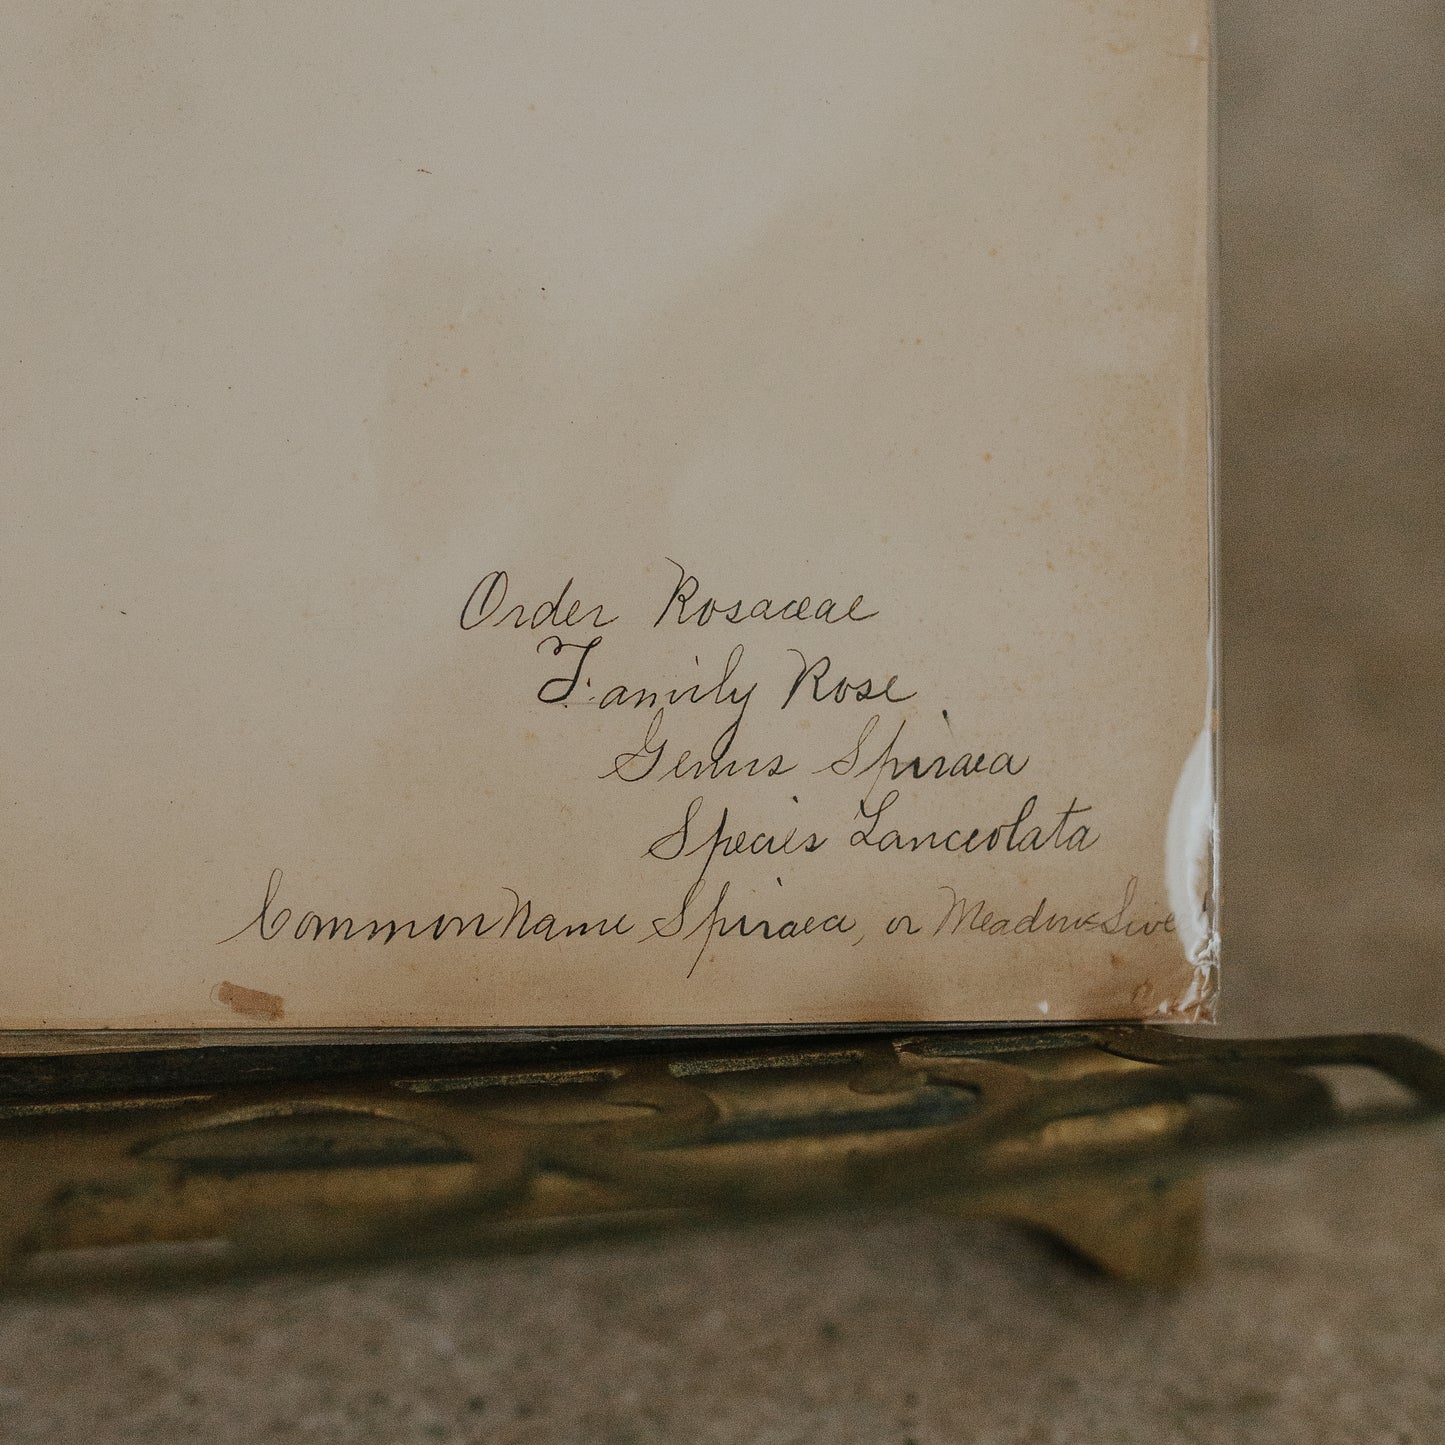 Order Rosaceae
Family Rose
Genus Spiraea
Species Lanceolata
Common Name Spiraea, or Meadow Swe